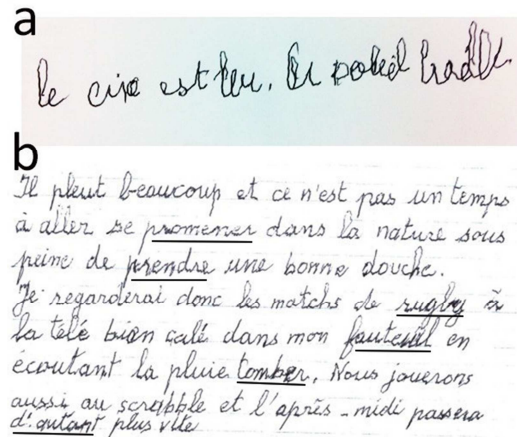 a
le est leu.
b
Il pleut beaucoup et ce n'est pas un temps
à aller se promener dans la nature sous
peine de prendre une bonne douche.
Je regarderai donc les matchs de rugby à
la télé bien calé dans mon fauteuil en
écoutant la pluie tomber. Nous jouerons
aussi au scrabble et l'après-midi passera
d'autant plus vite